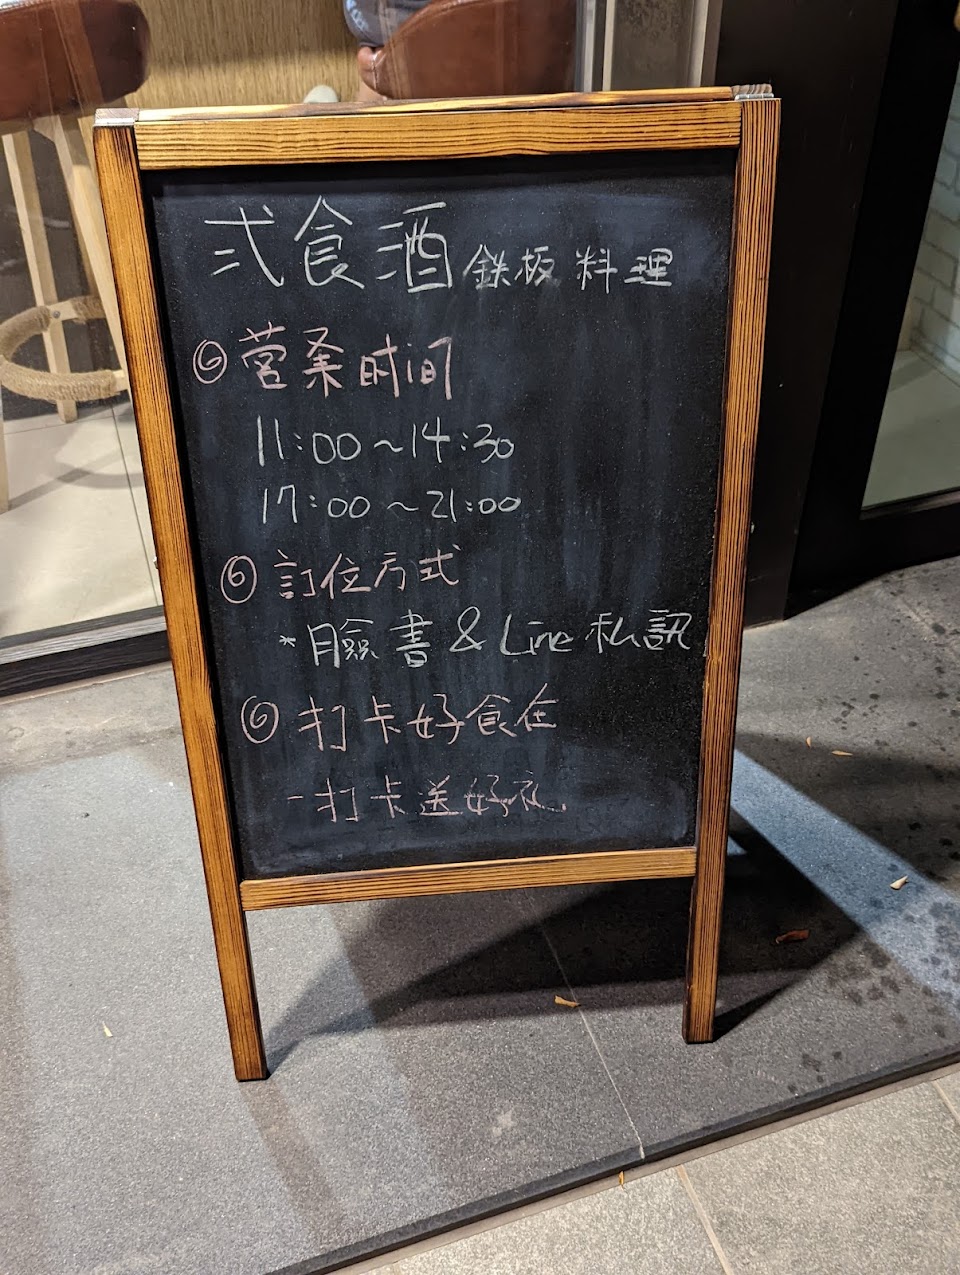 弍食酒 鉄板料理
⑥ 営業时间
11:00~14:30
17:00~21:00
⑥ 訂位方式
*臉書 & Line 私訊
⑥ 打卡好食在
-打卡送好礼